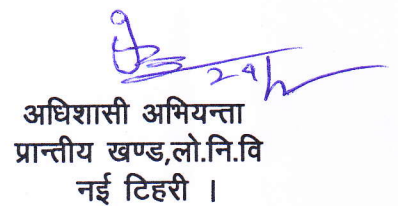 अधिशासी अभियन्ता
प्रान्तीय खण्ड,लो.नि.वि
नई टिहरी ।